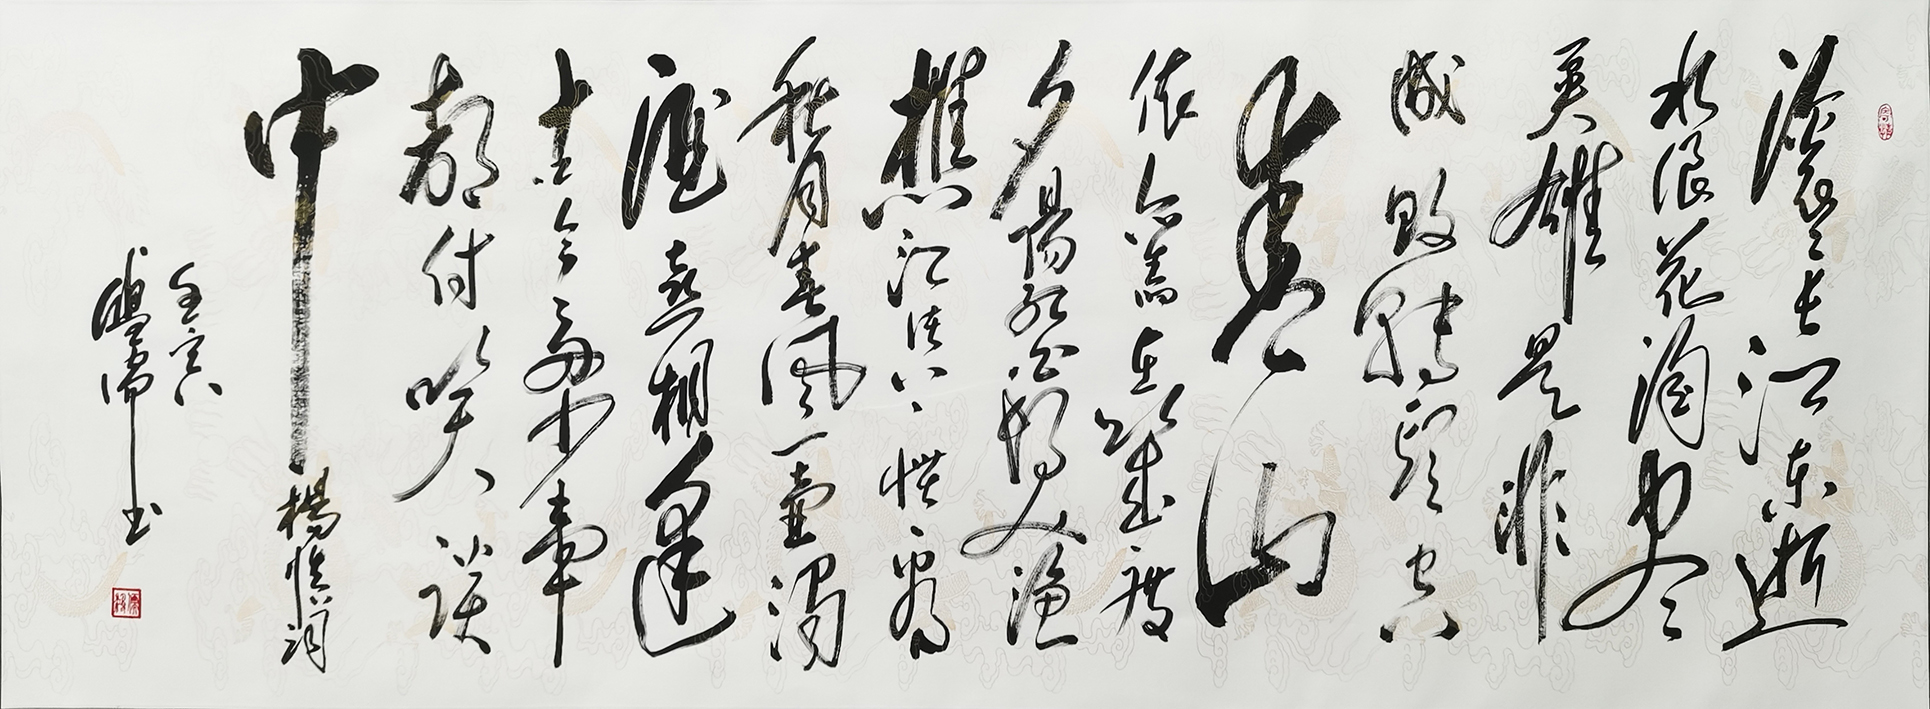 滚滚长江东逝
水浪花淘尽
英雄是非
成败转头空
青山
依舊在幾度
夕陽紅白髮渔
樵江渚上惯看
秋月春風一壺濁
酒喜相逢
古今多少事
都付笑談
中 楊慎詞
壬寅
书